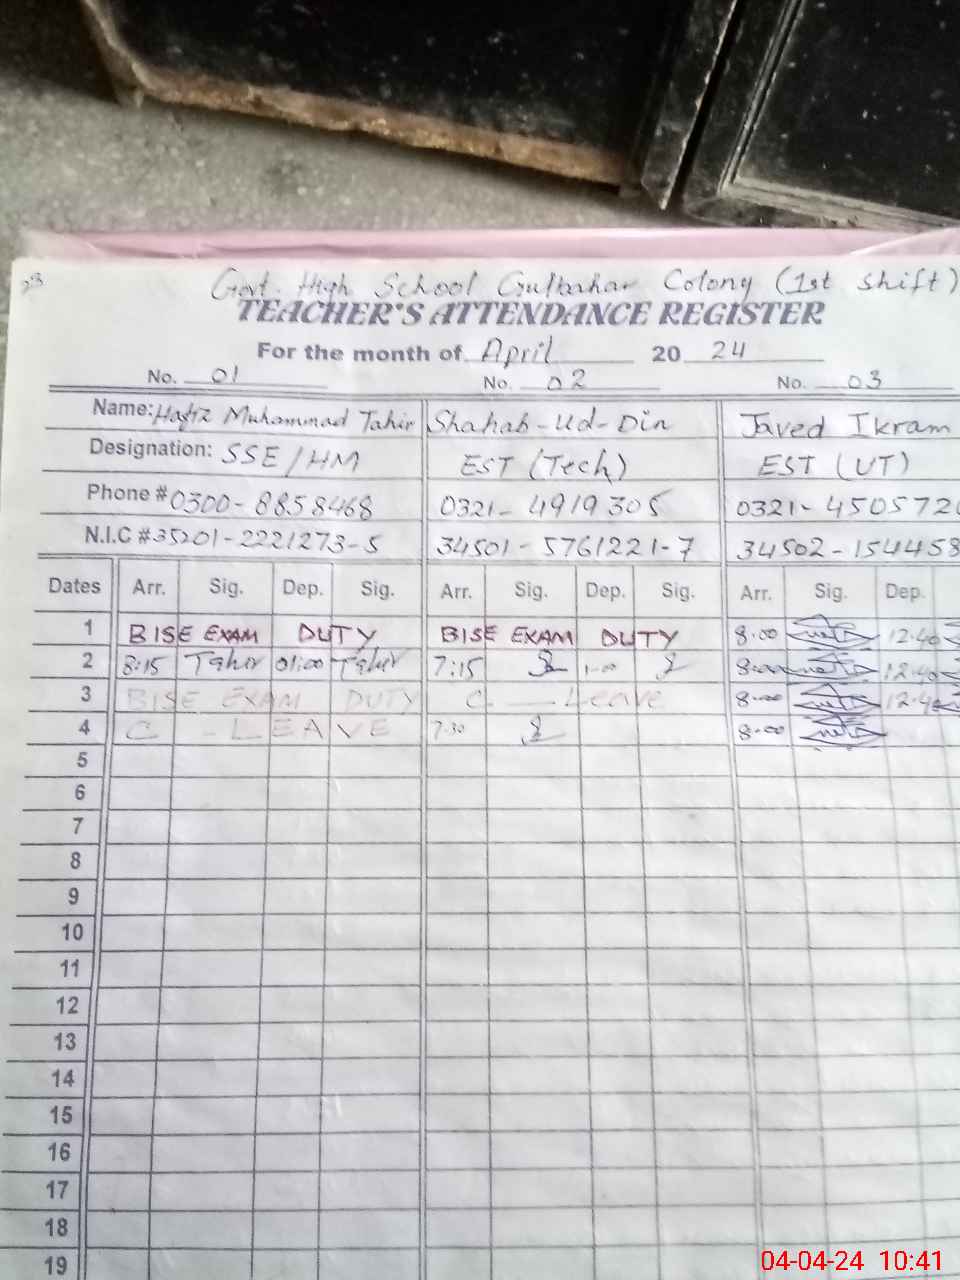 23
Govt. High School Gulbahar Colony (1st Shift)
TEACHER'S ATTENDANCE REGISTER
For the month of April 20 24
No. 01 No. 02 No. 03
Name: Hafiz Muhammad Tahir Shahab-Ud-Din Javed Ikram
Designation: SSE/HM EST (Tech) EST (UT)
Phone # 0300-8858468 0321-4919305 0321-4505720
N.I.C # 35201-2221273-5 34501-5761221-7 34502-154458
Dates Arr. Sig. Dep. Sig. Arr. Sig. Dep. Sig. Arr. Sig. Dep.
1 BISE EXAM DUTY BISE EXAM DUTY 8.00 12.40
2 8:15 Tahir 01:00 Tahir 7:15 1.00 8.00 12.40
3 BISE EXAM DUTY C. Leave 8.00 12.40
4 C - LEAVE 7.30 8.00
5
6
7
8
9
10
11
12
13
14
15
16
17
18
19
04-04-24 10:41